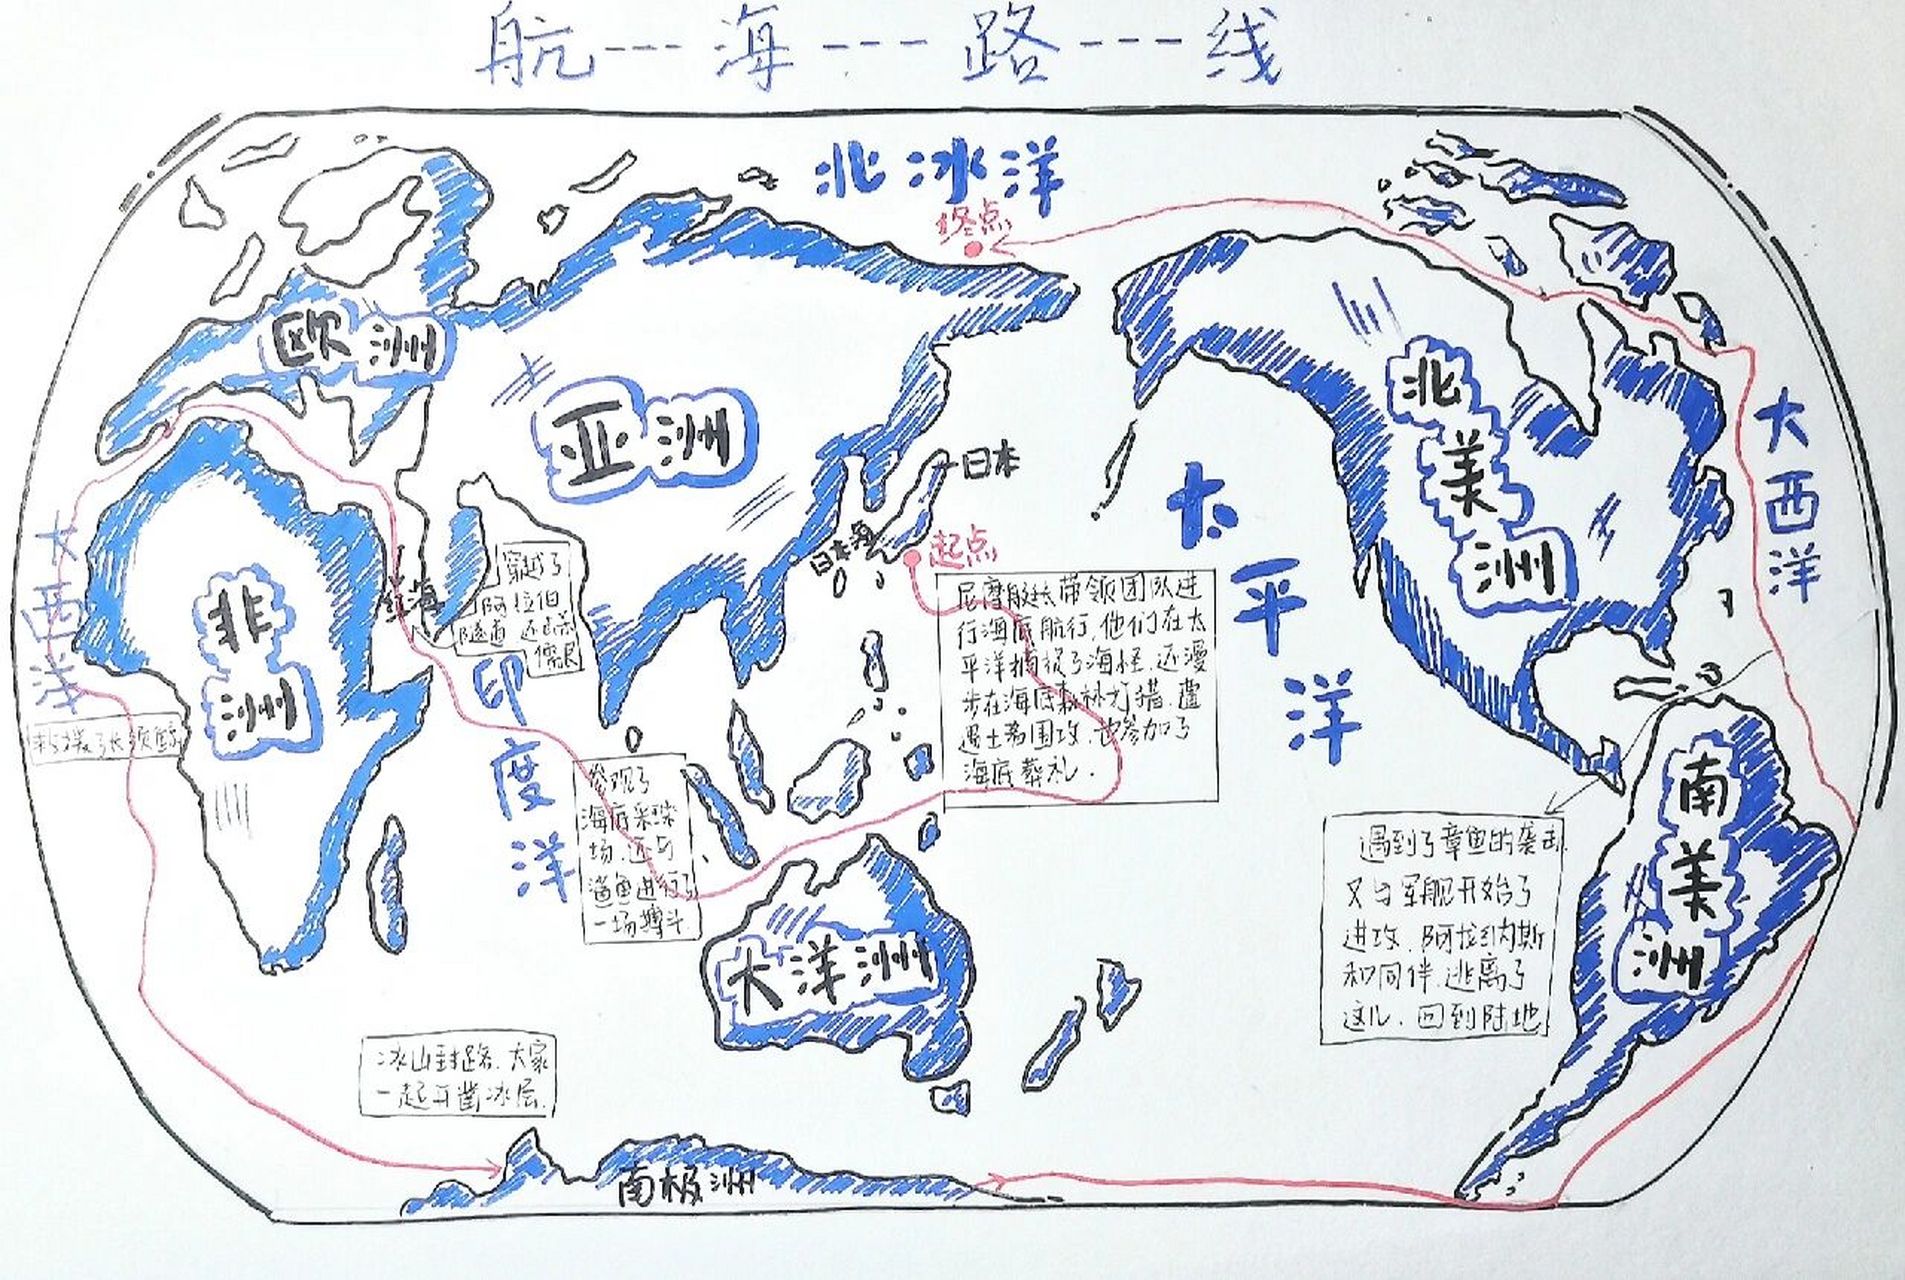 航---海---路---线
北冰洋
终点
欧洲
亚洲
日本
日本海
起点
太平洋
北美洲
大西洋
大西洋
非洲
红海
穿越了
阿拉伯
隧道 还
儒艮
印度洋
尼摩艇长带领团队进
行海底航行,他们在太
平洋捕捉了海怪.还漫
步在海底森林打猎.遭
遇土著围攻.也参加了
海底葬礼.
参观了
海底采珠
场.还与
鲨鱼进行了
一场搏斗
大洋洲
南美洲
遇到了章鱼的袭击.
又与军舰开始了
进攻.阿拉纳斯
和同伴.逃离了
这儿.回到陆地
冰山封路.大家
一起开凿冰层.
南极洲